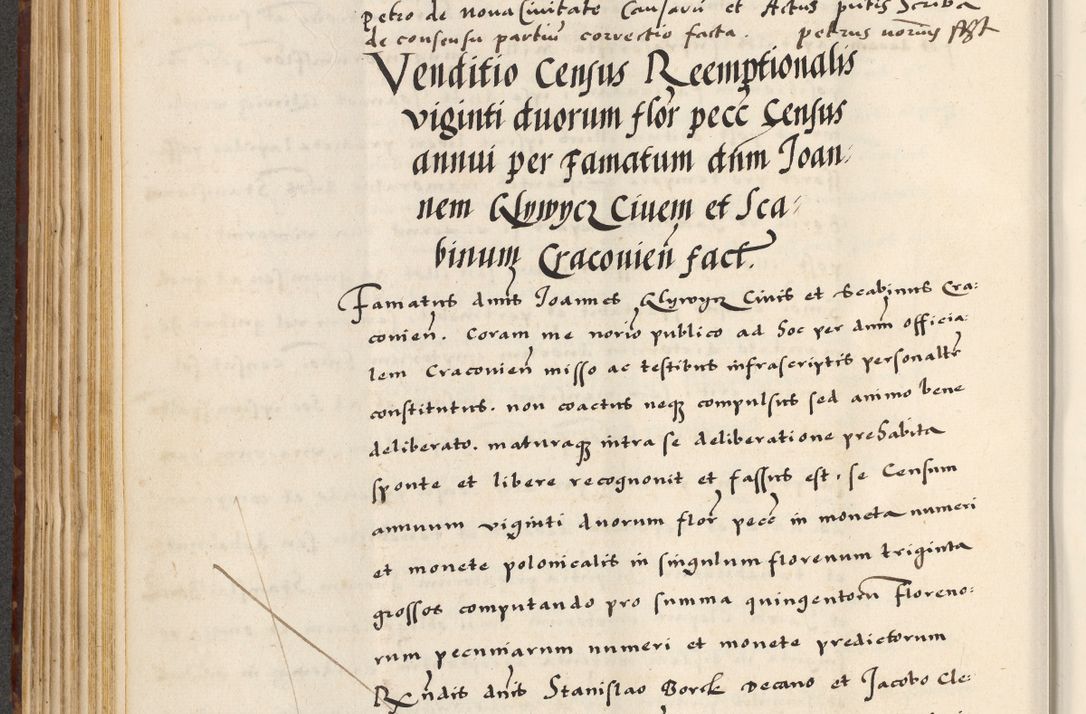 Petro de Nova Civitate Causarum et Actus pntis Scriba
de consensu partiu correctio facta. petrus norius sßt
Venditio Census Reemptionalis
viginti duorum flor pecc Census
annui per Famatum dnm Joan:
nem Glywycz Ciuem et Sca:
binum Craconień fact.
Famatus dnus Joannes Glywycz Ciuis et Scabinus Cra:
conień. Coram me norio publico ad hoc per dnm officia:
lem Craconień misso ac testibus infrascriptis personaltr
constitutus. non coactus neqz compulsus sed animo bene
deliberato. maturaqz intra se deliberatione prehabita
sponte et libere recognouit et fassus est. se Censum
annuum viginti duorum flor pecc in moneta numeri
et monete polonicalis in singulum florenum triginta
grossos computando pro summa quingentoru Floreno:
rum pecuniarum numeri et monete predictorum
Rxndis dnis Stanislao Borck Decano et Jacobo Cle: